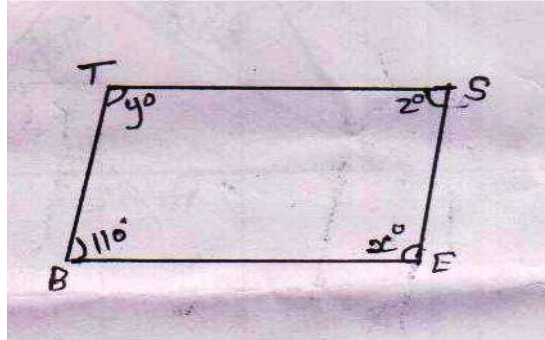 T S
y° z°
110° x°
B E